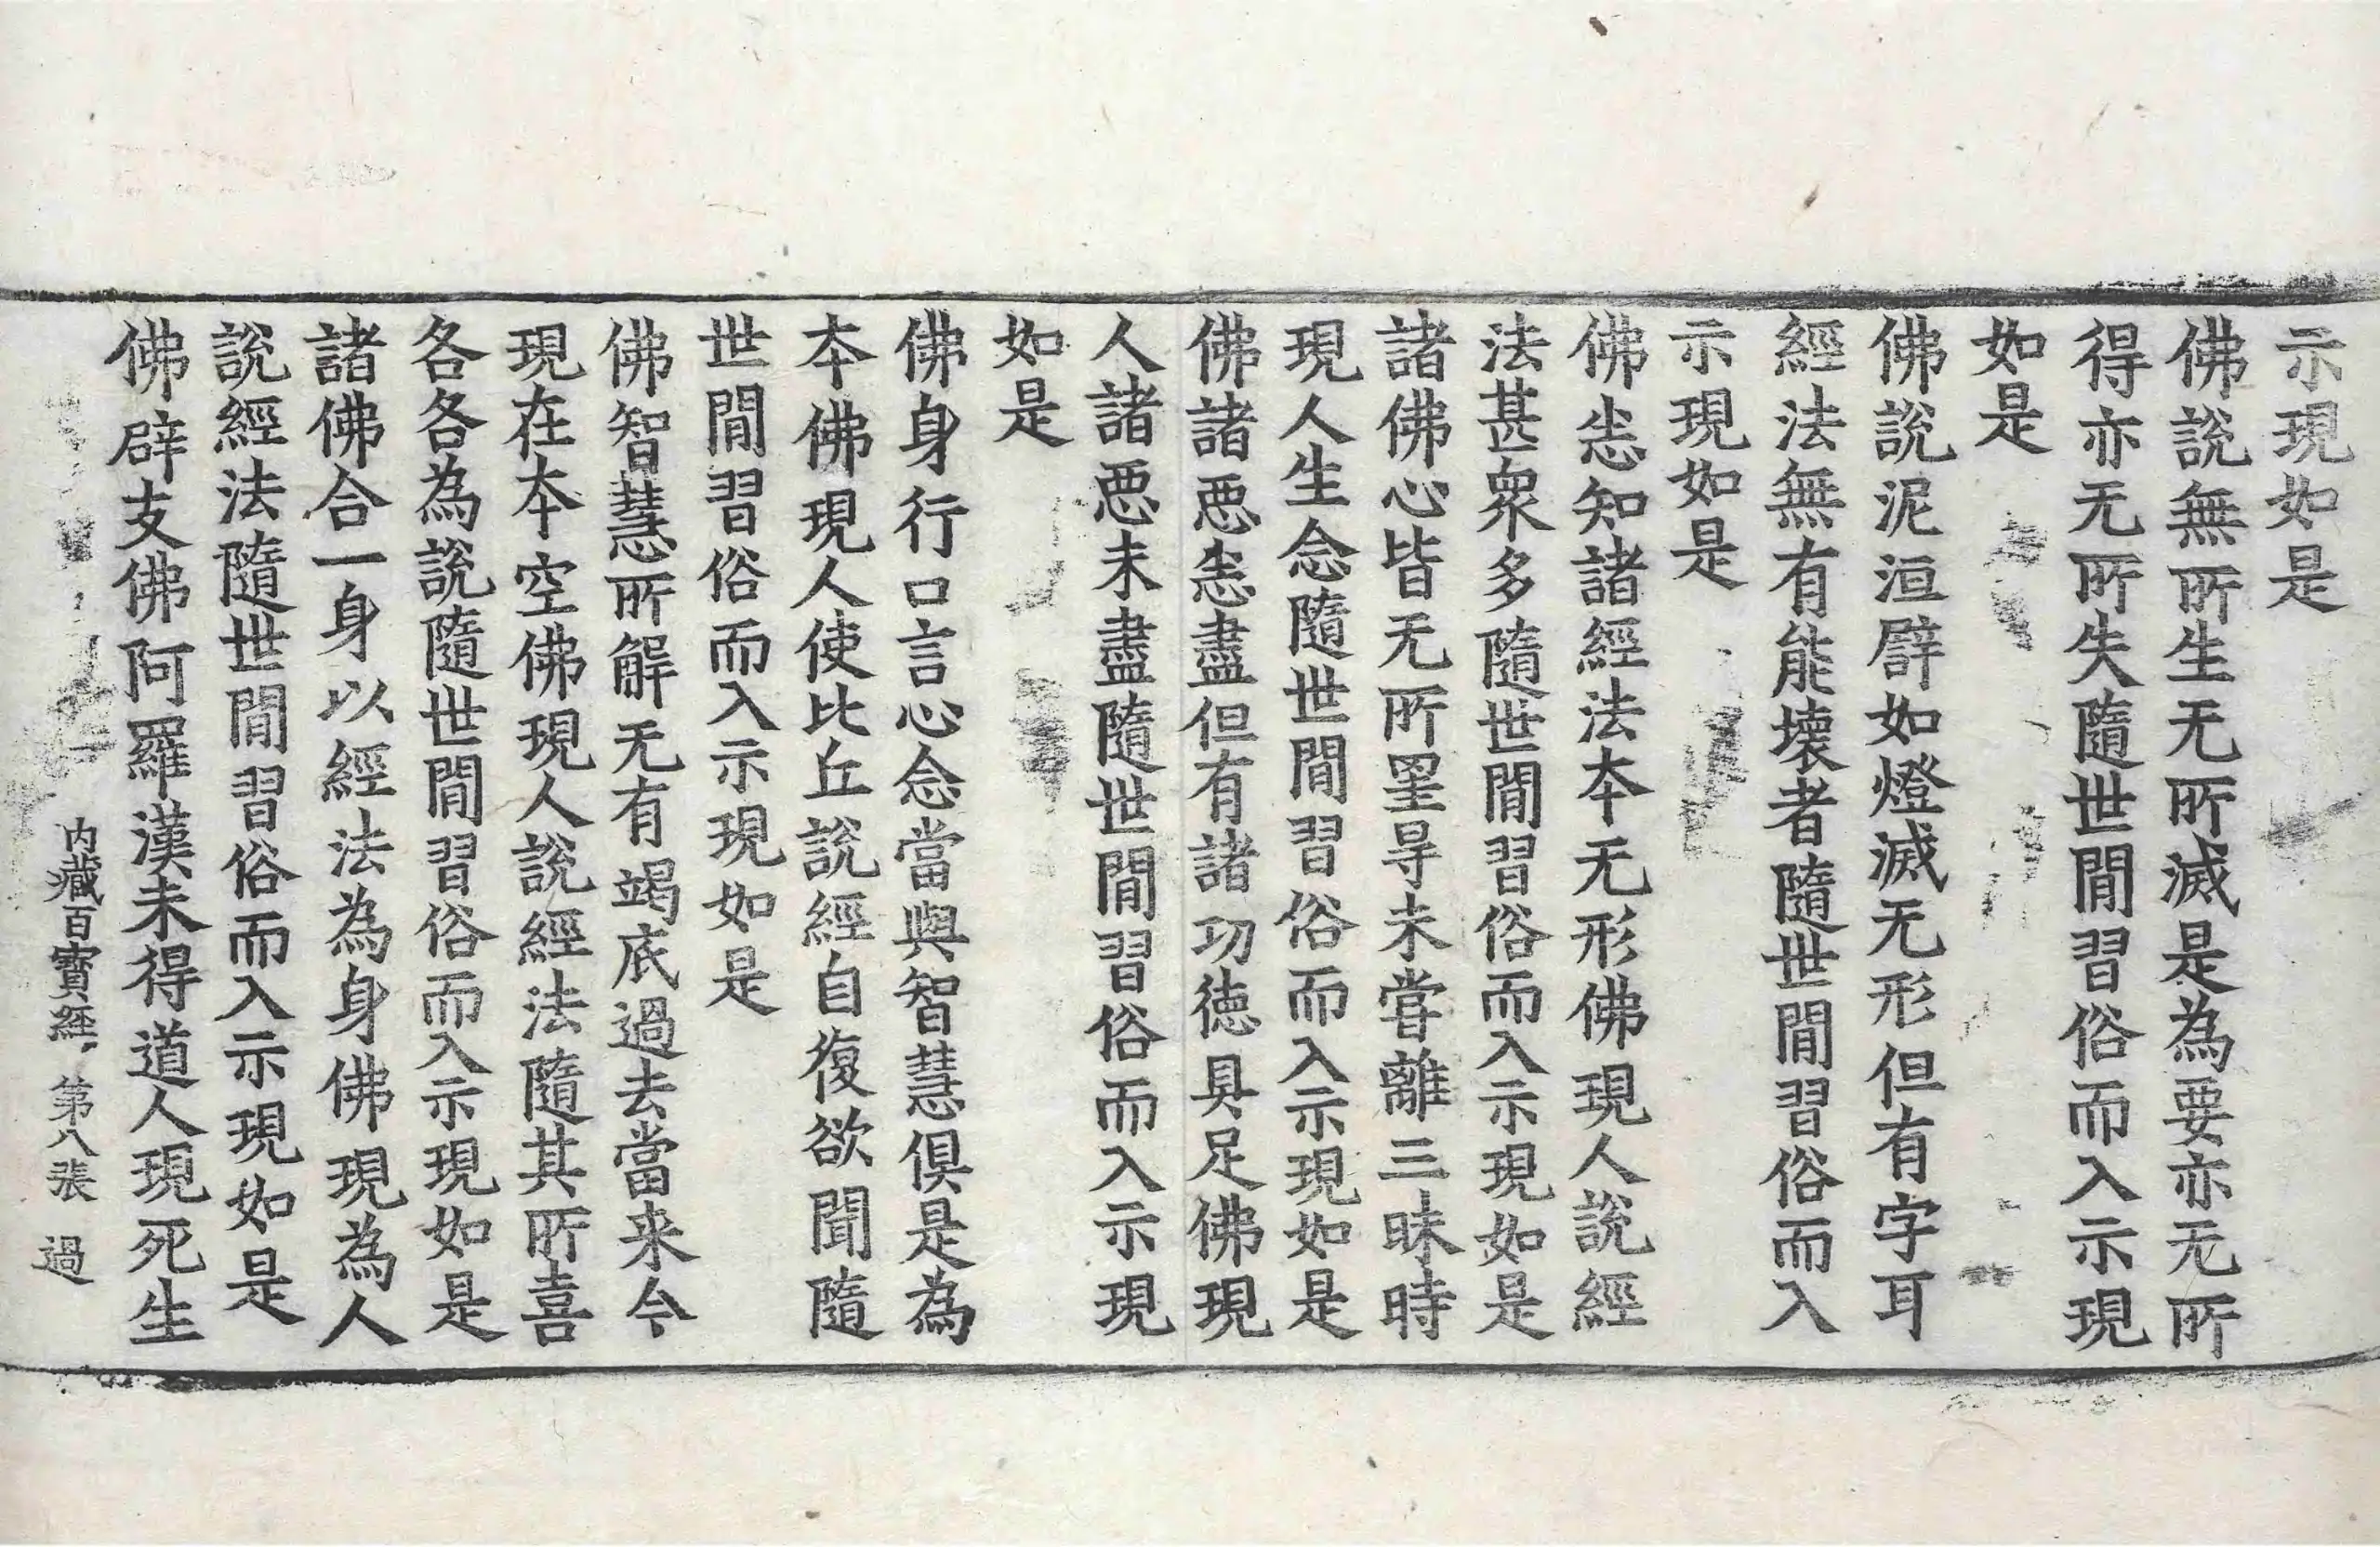 示現如是
佛說無所生无所滅是為要亦无所
得亦无所失隨世閒習俗而入示現
如是
佛說泥洹譬如燈滅无形但有字耳
經法無有能壞者隨世閒習俗而入
示現如是
佛悉知諸經法本无形佛現人說經
法甚衆多隨世閒習俗而入示現如是
諸佛心皆无所罣㝵未嘗離三昧時
現人生念隨世閒習俗而入示現如是
佛諸惡悉盡但有諸功德具足佛現
人諸惡未盡隨世閒習俗而入示現
如是
佛身行口言心念當與智慧俱是為
本佛現人使比丘說經自復欲聞隨
世閒習俗而入示現如是
佛智慧所解无有竭底過去當来今
現在本空佛現人說經法隨其所喜
各各為說隨世閒習俗而入示現如是
諸佛合一身以經法為身佛現為人
說經法隨世閒習俗而入示現如是
佛辟支佛阿羅漢未得道人現死生
内藏百寶經 第八張 過